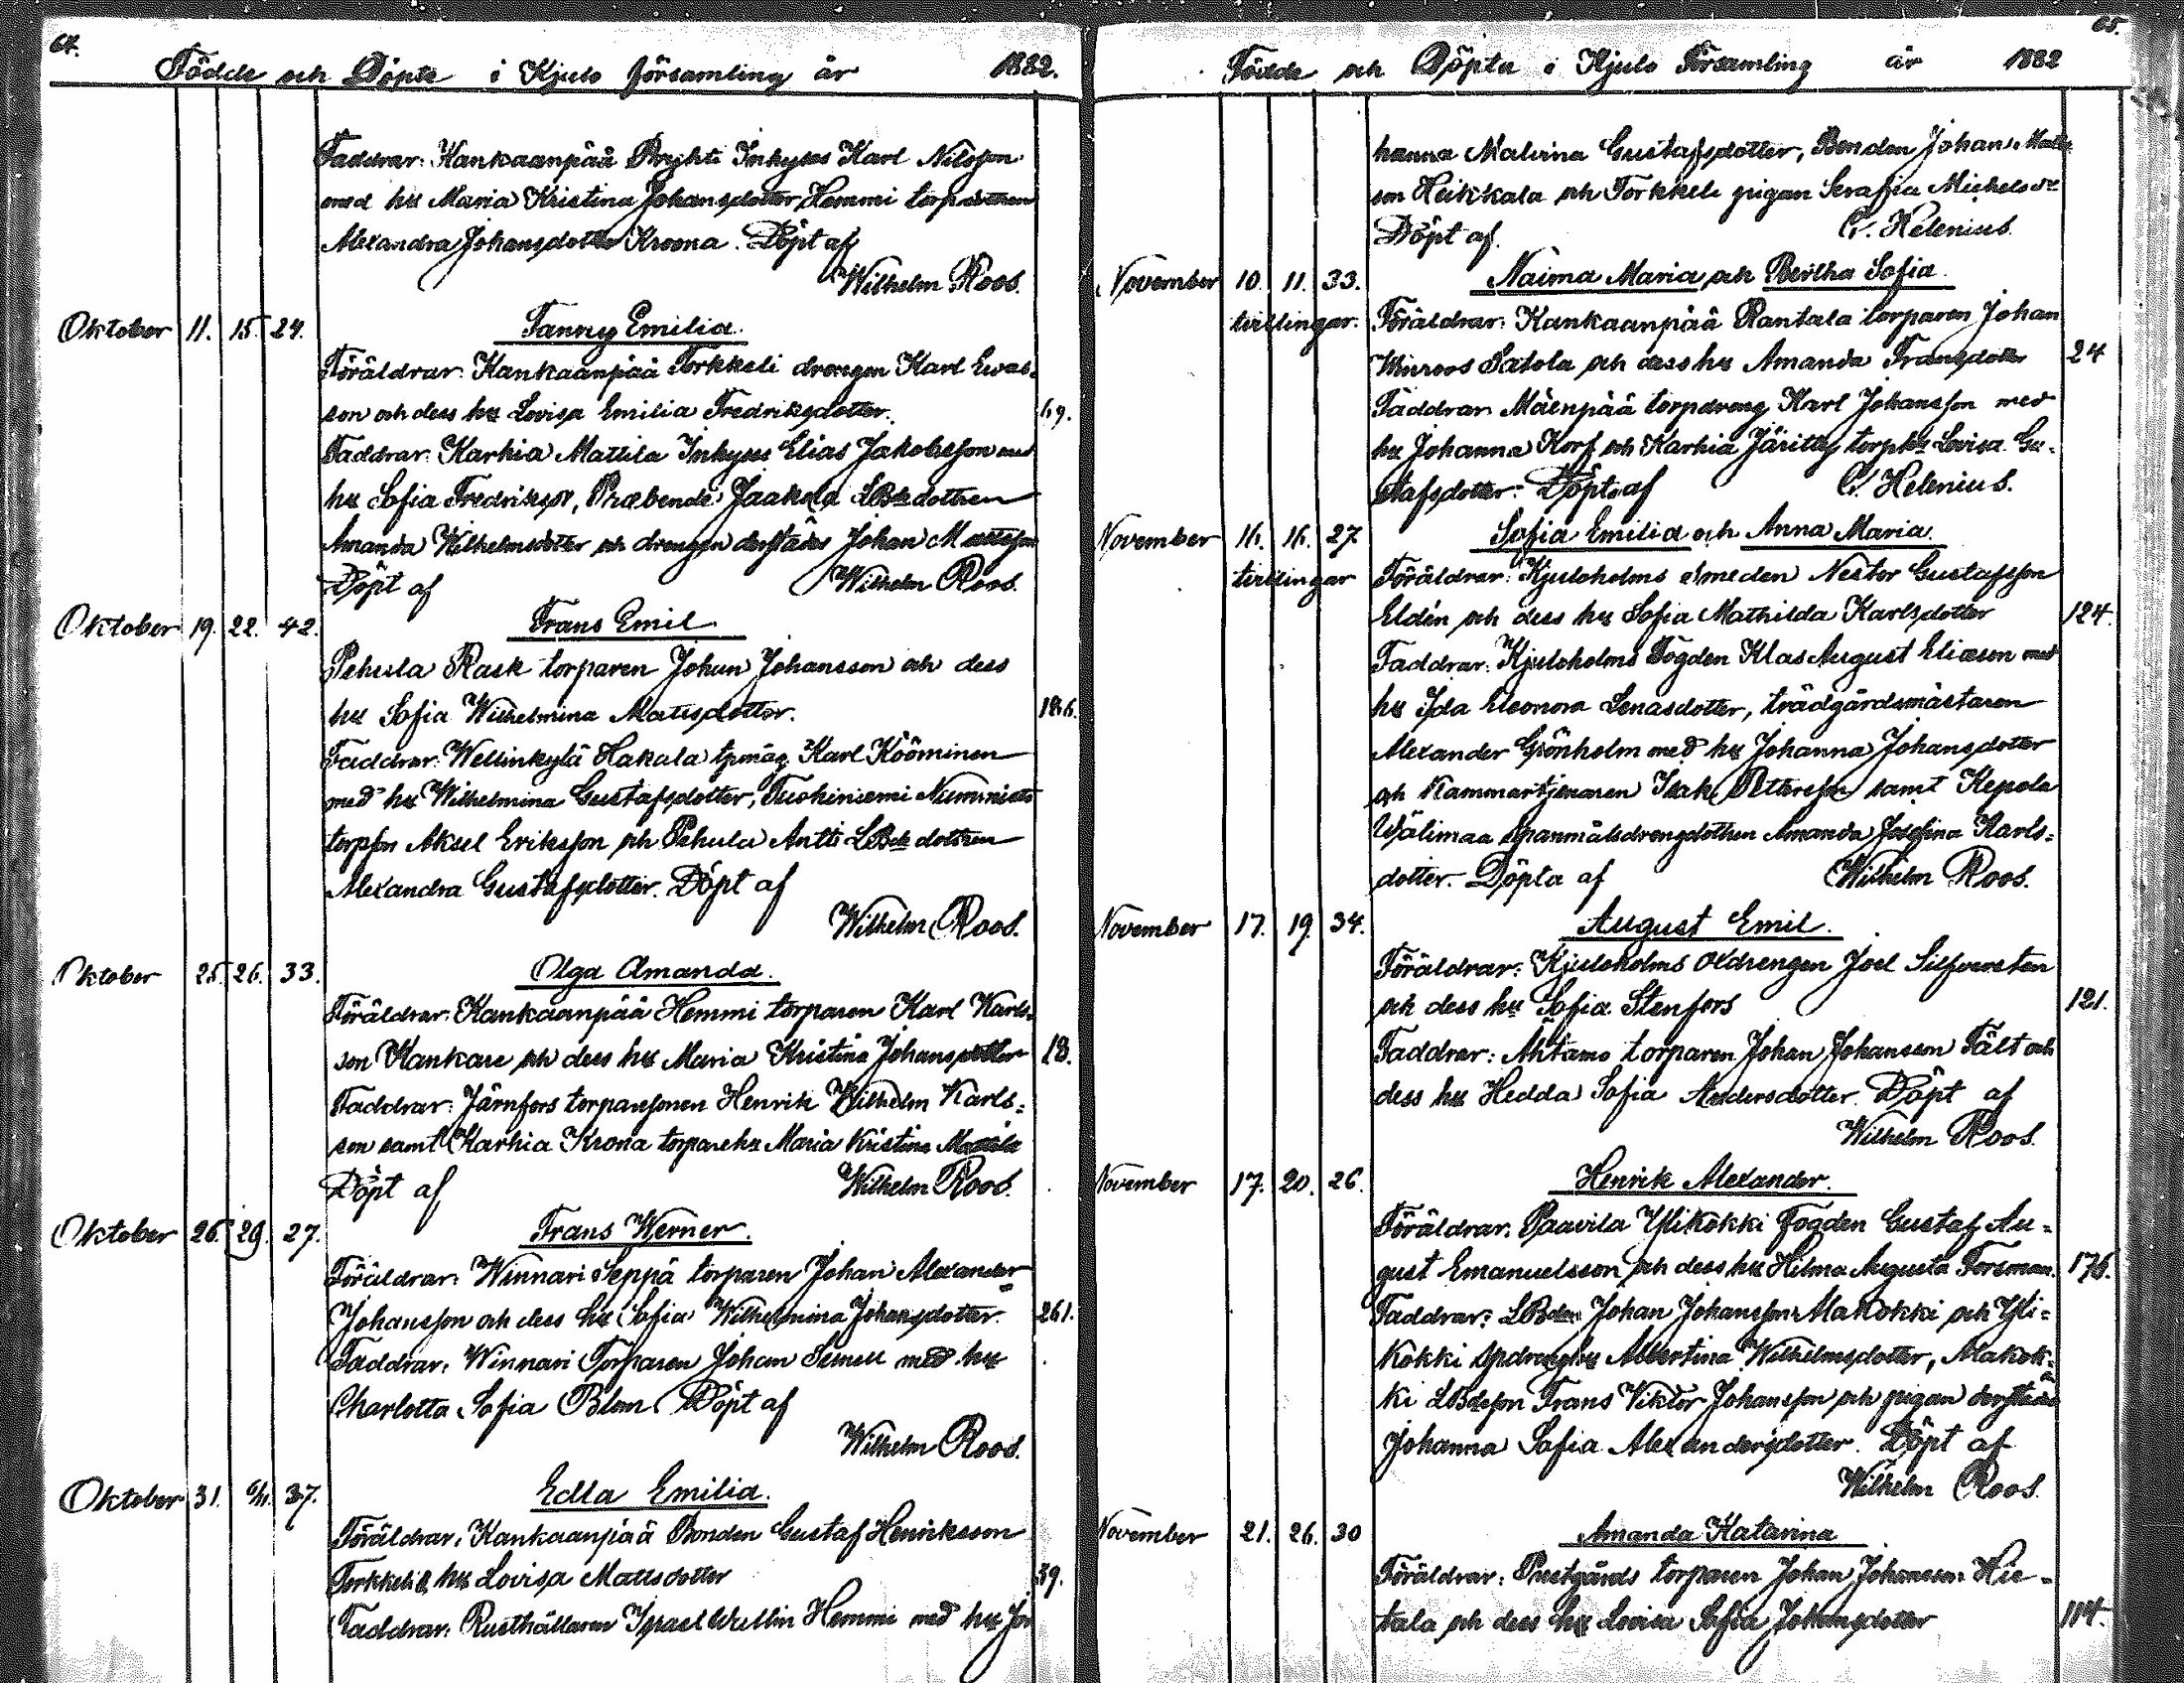 64.
Födde och Döpte i Kjulo församling år 1882.
Faddrar: Kankaanpää Pryhti Inhyses Karl Nilsson
med hu Maria Kristina Johansdotter, Hemmi torpdottren
Alexandra Johansdotter Kroona. Döpt af
Wilhelm Roos.
Oktober 11. 15. 24. Fanny Emilia.
Föräldrar: Kankaanpää Torkkeli drengen Karl Ewas-
son och dess hu Lovisa Emilia Fredriksdotter. 69.
Faddrar: Karhia Mattila Inhyses Elias Jakobsson med
hu Sofia Fredriksdr, Præbende Jaakola LBde dottren
Amanda Wilhelmsdotter och drengen derstädes Johan Mattsson
Döpt af Wilhelm Roos.
Oktober 19. 22. 42. Frans Emil
Pehula Rask torparen Johan Johansson och dess
hu Sofia Wilhelmina Mattsdotter. 186.
Faddrar: Wellinkylä Hakala Karl Kööminen
med hu Wilhelmina Gustafsdotter, Tuohiniemi Numministo
torpson Aksel Eriksson och Pehula Antti LBde dottren
Alexandra Gustafsdotter. Döpt af
Wilhelm Roos.
Oktober 25. 26. 33. Olga Amanda.
Föräldrar: Kankaanpää Hemmi torparen Karl Karls-
son Kankare och dess hu Maria Kristina Johansdotter 18.
Faddrar: Järnfors torparesonen Henrik Wilhelm Karls-
son samt Karhia Krona torparehu Maria Kristina
Döpt af Wilhelm Roos.
Oktober 26. 29. 27. Frans Werner.
Föräldrar: Winnari Seppä torparen Johan Alexander
Johansson och dess hu Sofia Wilhelmina Johansdotter. 261.
Faddrar: Winnari Torparen Johan med hu
Charlotta Sofia Blom Döpt af
Wilhelm Roos.
Oktober 31. 5/11. 37. Edla Emilia.
Föräldrar: Kankaanpää Bonden Gustaf Henriksson
Torkkeli & hu Lovisa Mattsdotter 39.
Faddrar: Rusthållaren Israel Wallin Hemmi med hu Jo
65.
Födde och Döpta i Kjulo Församling år 1882
hanna Malvina Gustafsdotter, Bonden Johan Matts-
son Heikkala och Torkkeli pigan Serafia Michelsdr
Döpt af G. Helenius.
November 10. 11. 33. Naima Maria och Bertha Sofia.
tvillingar. Föräldrar: Kankaanpää Rantala torparen Johan
Satola och dess hu Amanda Fransdotter 24
Faddrar Mäenpää torpdreng Karl Johansson med
hu Johanna Korf och Karhia Järitty torphu Lovisa Gu-
stafsdotter. Döpt af G. Helenius.
November 16. 16. 27 Sofia Emilia och Anna Maria.
tvillingar Föräldrar: Kjuloholms smeden Nestor Gustafsson
Eldén och dess hu Sofia Mathilda Karlsdotter 124.
Faddrar: Kjuloholms Fogden Klas August Eliasson med
hu Ida Eleonora Lenasdotter, trädgårdsmästaren
Alexander Grönholm med hu Johanna Johansdotter
och Kammartjenaren Isak Petterson samt Kepola
Wälimaa Spanmålsdrengdottren Amanda Josefina Karls-
dotter. Döpta af Wilhelm Roos.
November 17. 19. 34. August Emil.
Föräldrar: Kjuloholms Oldrengen Joel Silfversten
och dess hu Sofia Stenfors 121.
Faddrar: Ahtamo torparen Johan Johansson Fält och
dess hu Hedda Sofia Andersdotter. Döpt af
Wilhelm Roos.
November 17. 20. 26. Henrik Alexander.
Föräldrar: Paavila Ylikokki Fogden Gustaf Au-
gust Emanuelsson och dess hu Hilma Augusta Forsman. 175.
Faddrar: LBden Johan Johansson Makokki och Yli-
kokki Albertina Wilhelmsdotter, Makok-
ki LBdeson Frans Viktor Johansson och pigan derstädes
Johanna Sofia Alexandersdotter. Döpt af
Wilhelm Roos.
November 21. 26. 30 Amanda Katarina
Föräldrar: Prestgårds torparen Johan Johansson Hie-
tala och dess hu Lovisa Sofia Johansdotter 114.